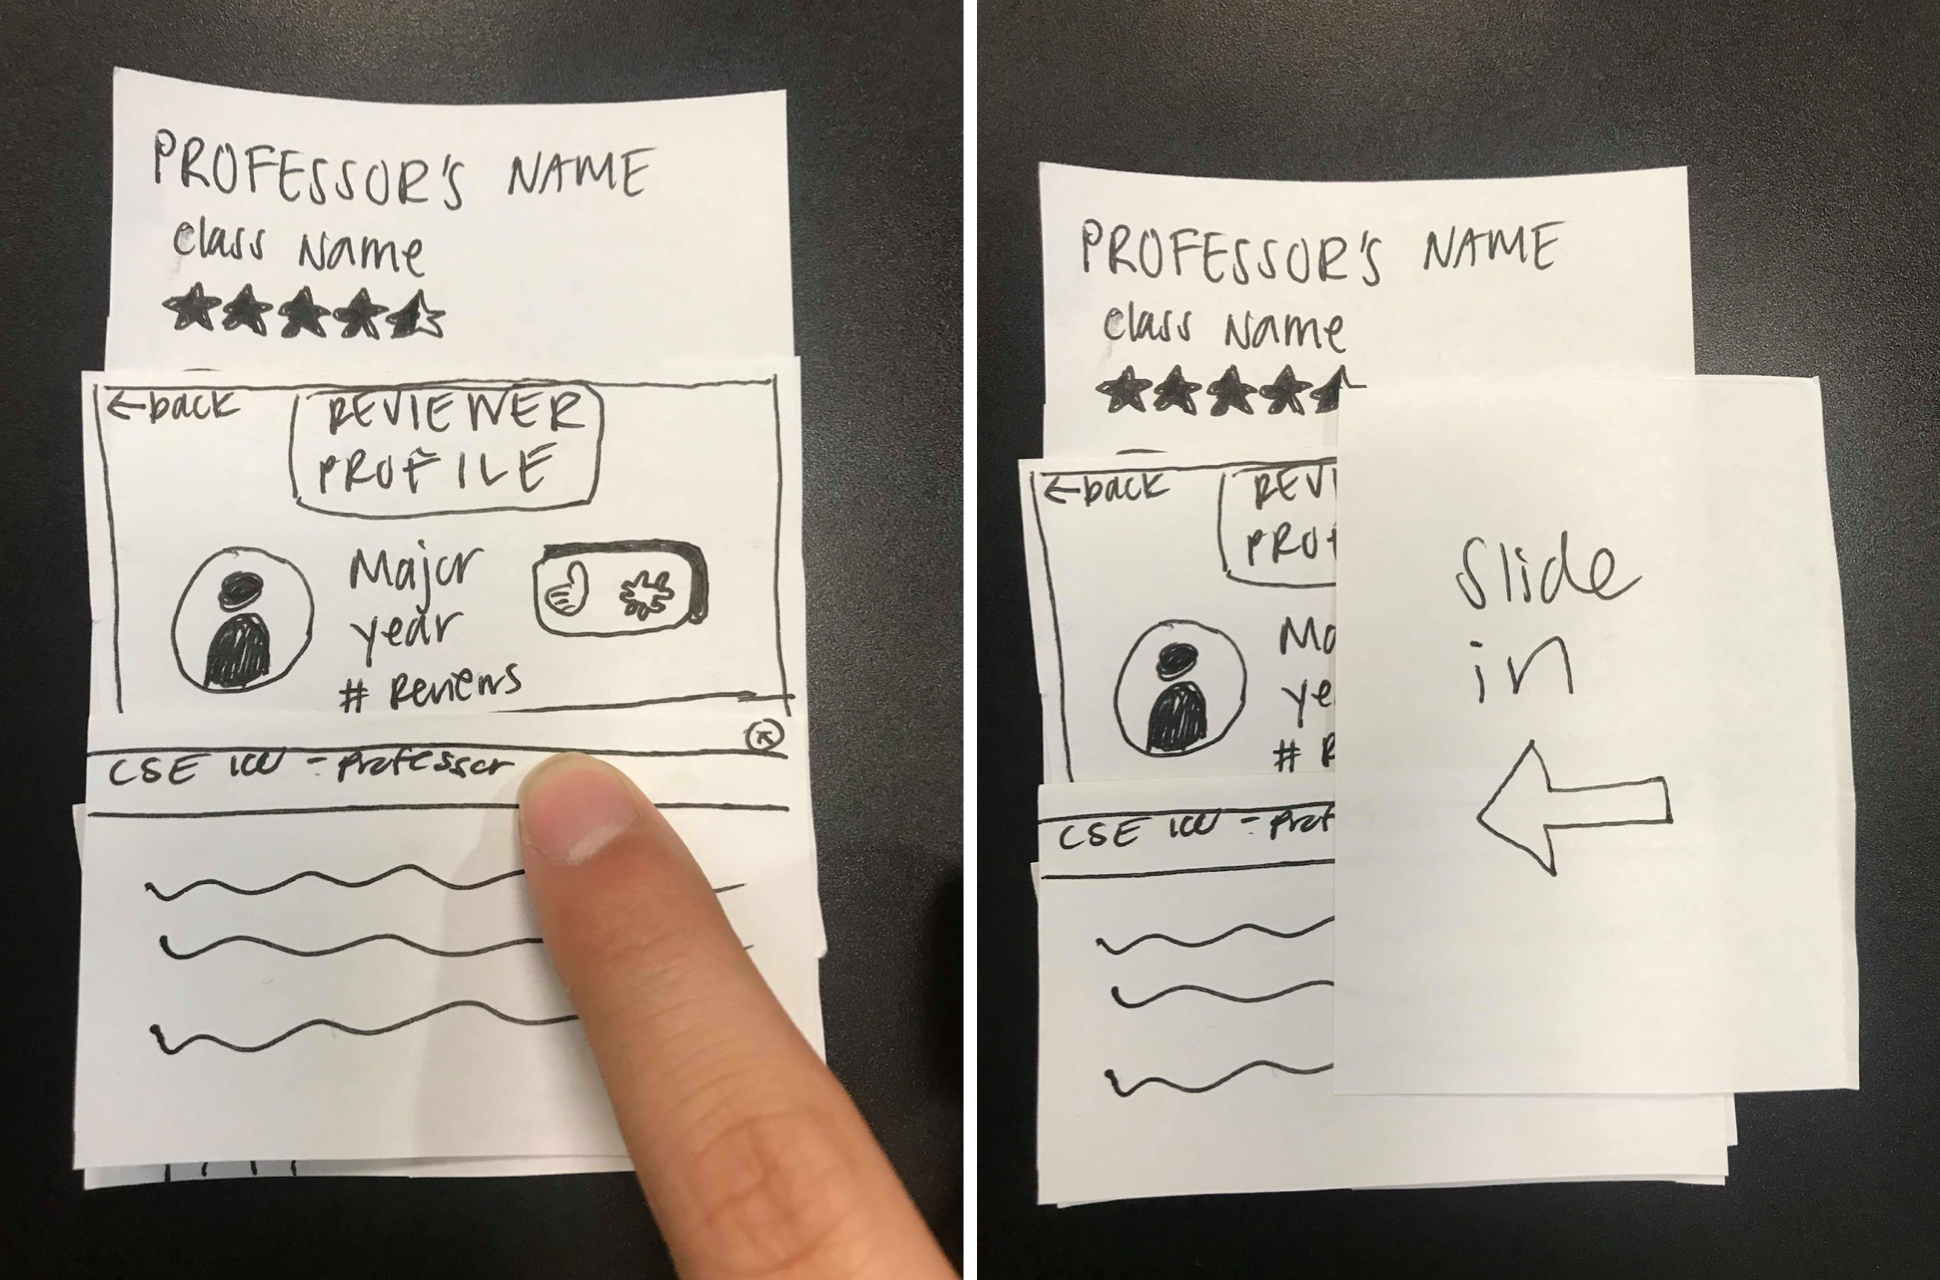 PROFESSOR'S NAME
Class Name
←back
REVIEWER
PROFILE
Major
year
# Reviews
CSE 100 - Professor
PROFESSOR'S NAME
Class Name
←back
REVI
PROF
Ma
ye
# R
CSE 100 - Prof
Slide
in